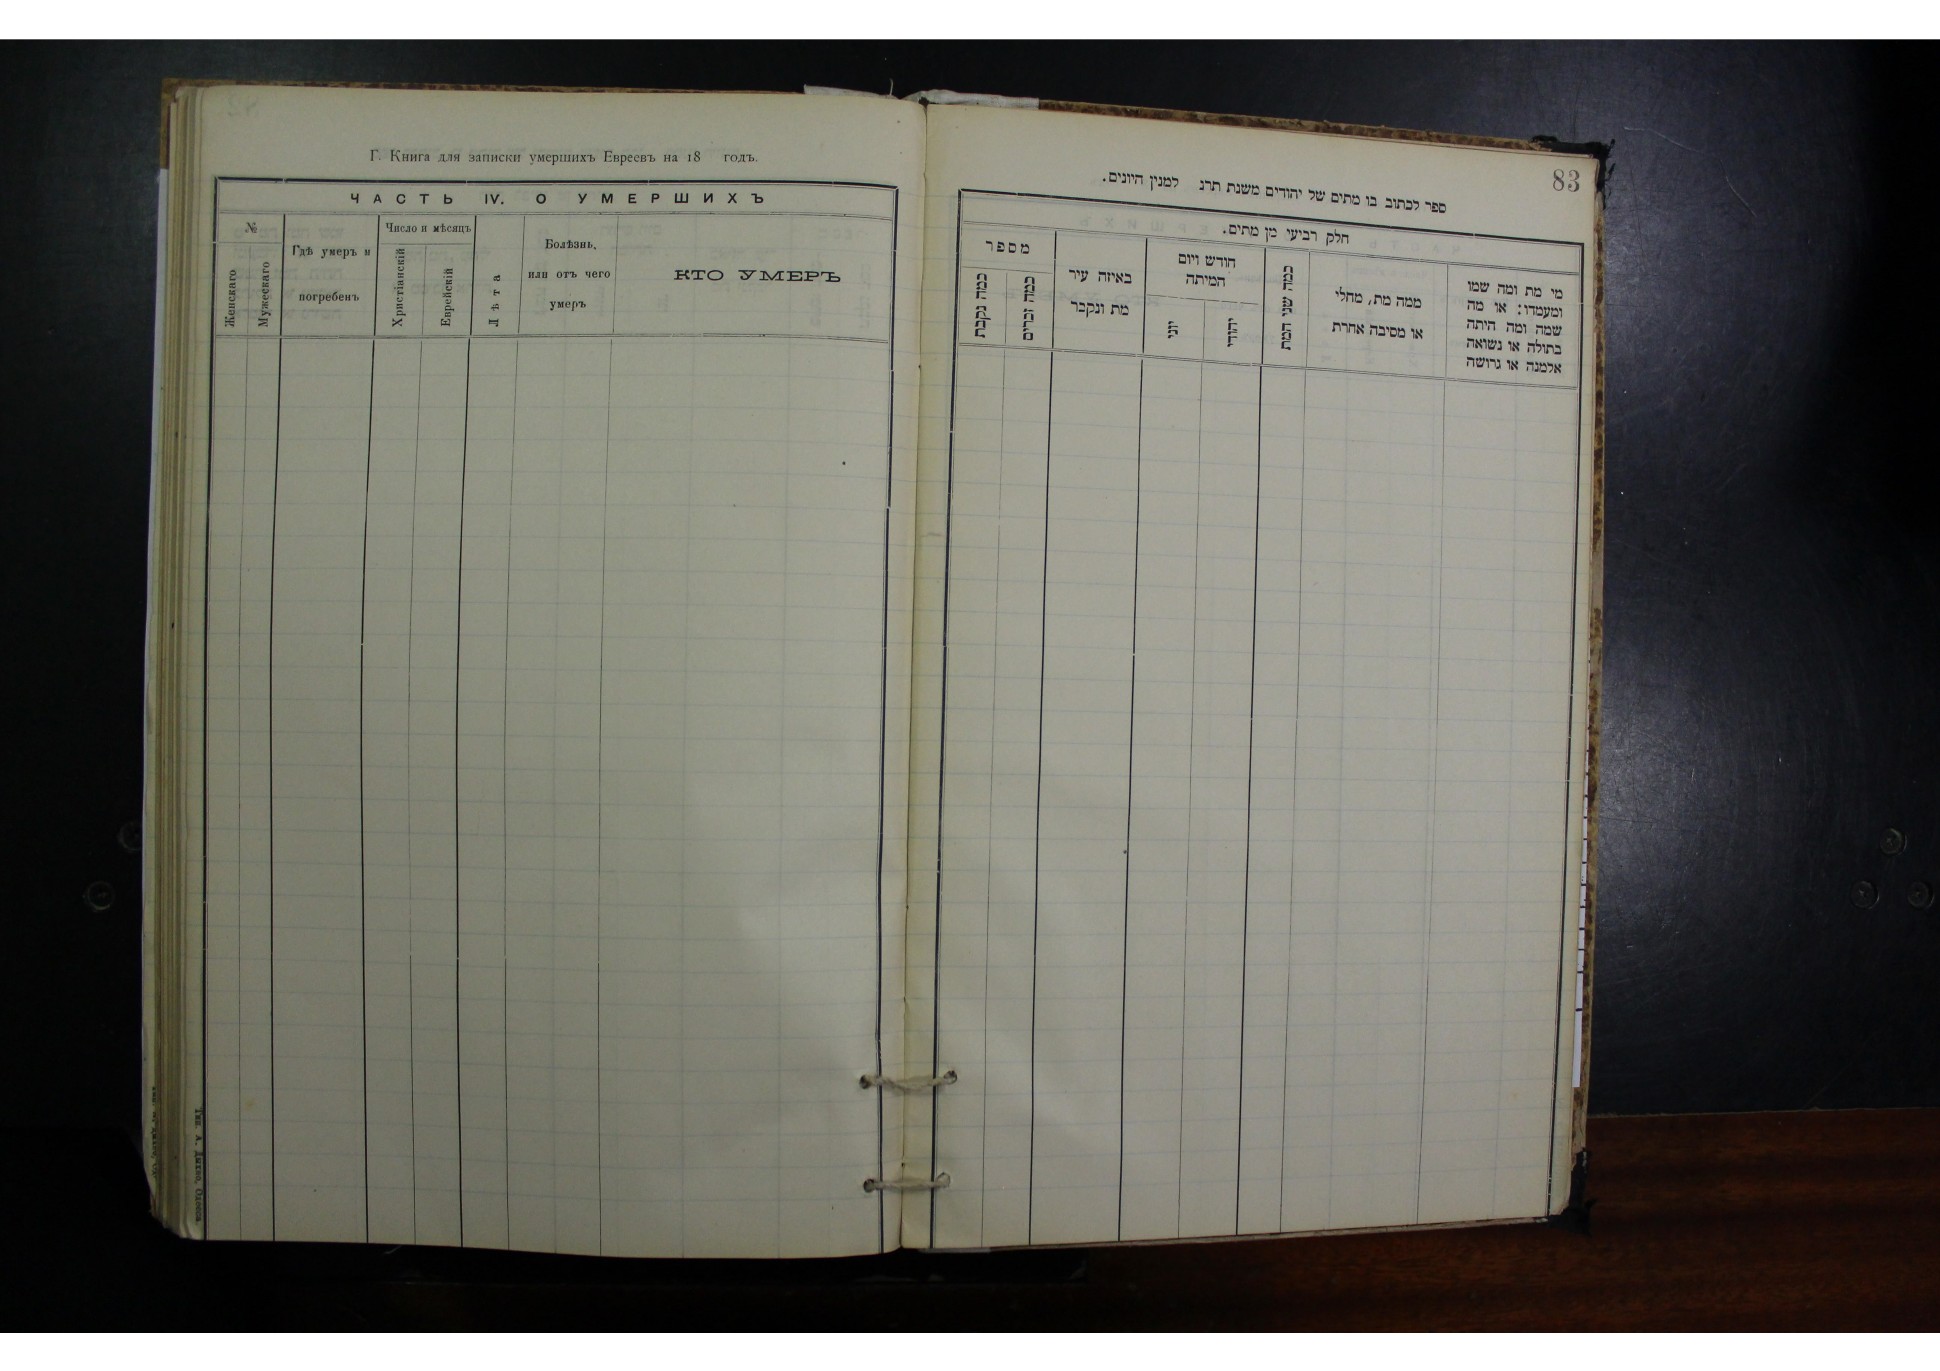 Г. Книга для записки умершихъ Евреевъ на 18 годъ.
ЧАСТЬ IV. О УМЕРШИХЪ
№
Женскаго
Мужескаго
Гдѣ умеръ и
погребенъ
Число и мѣсяцъ
Христіанскій
Еврейскій
Лѣта
Болѣзнь,
или отъ чего
умеръ
КТО УМЕРЪ
Тип. А. Одесса.
83
ספר לכתוב בו מתים של יהודים משנת תרנ למנין היונים.
חלק רביעי מן מתים.
מספר
כמה נקבת
כמה זכרים
באיזה עיר
מת ונקבר
חודש ויום
המיתה
יוני
יהודי
כמה שני המת
ממה מת, מחלי
או מסיבה אחרת
מי מת ומה שמו
ומעמדו: או מה
שמה ומה היתה
בתולה או נשואה
אלמנה או גרושה